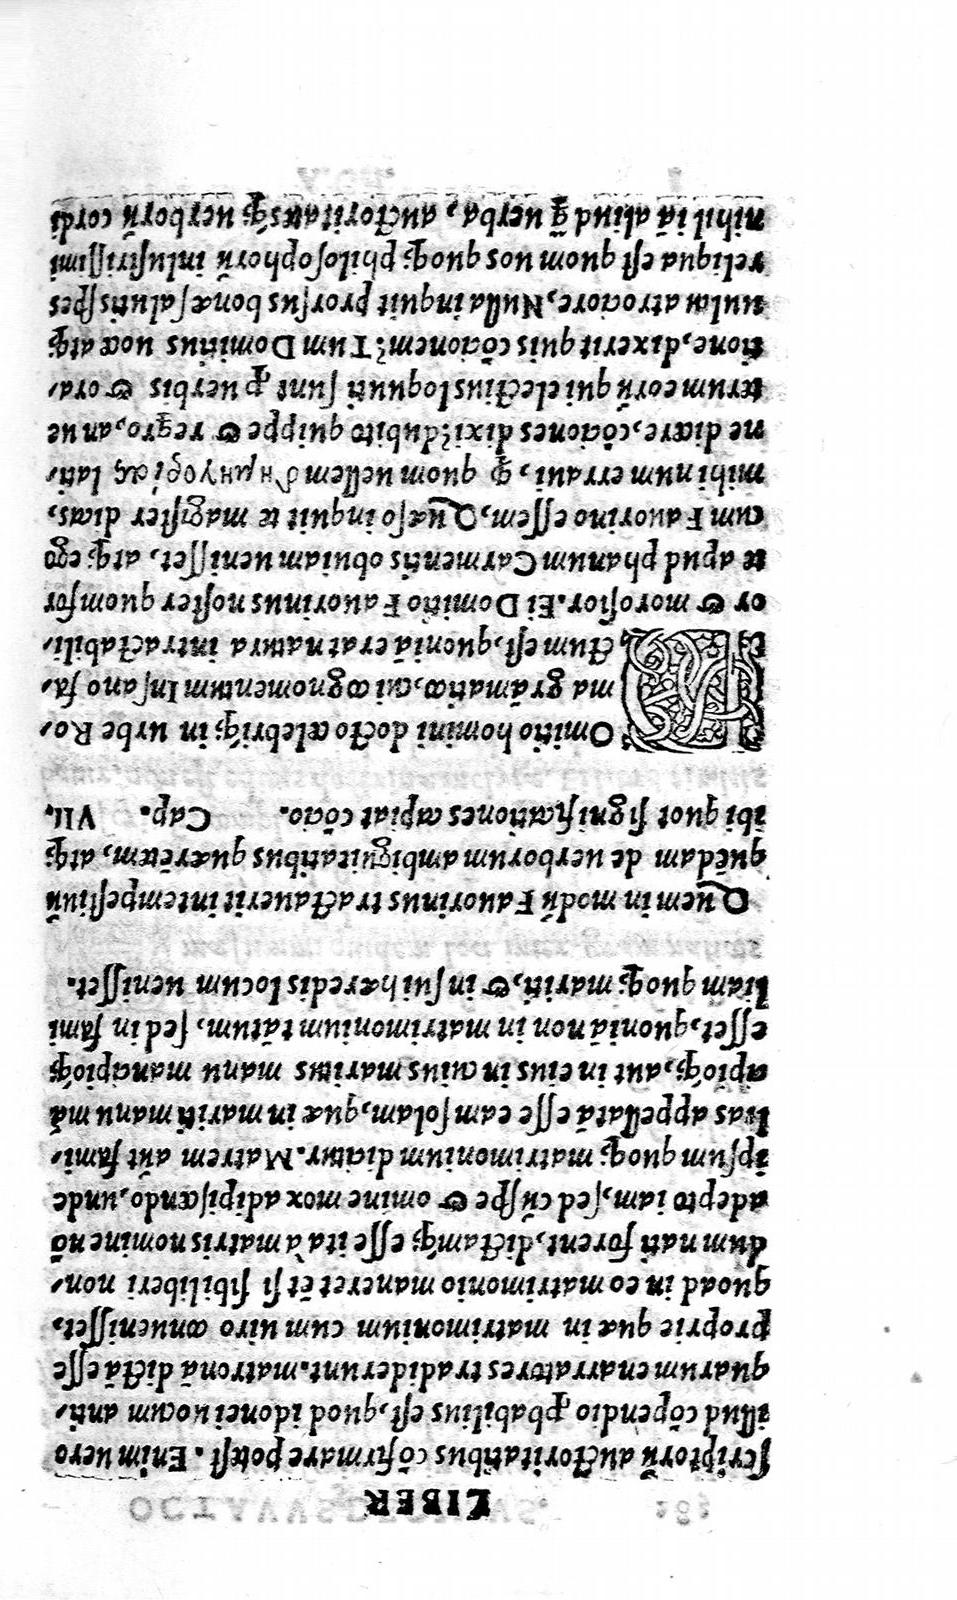 LIBER
ſcriptorũ auctoritatibus cõfirmare poteſt. Enim uero
illud cõpẽdio ꝓbabilius eſt, quod idonei uocum anti-
quarum enarratores tradiderunt. matronã dictã eſſe
proprie quæ in matrimonium cum uiro conueniſſet,
quoad in eo matrimonio maneret ẽt ſi ſibi liberi non-
dum nati forent, dictamq; eſſe ita à matris nomine nõ
adepto iam, ſed cũ ſpe & omine mox adipiſcendo, unde
ipſum quoq; matrimonium dicitur. Matrem aũt fami-
lias appellatã eſſe eam ſolam, quæ in mariti manu mã
cipioq́;, aut in eius in cuius maritus manu mancipioq́;
eſſet, quoniã non in matrimonium tãtum, ſed in fami
liam quoq; mariti, & in ſui hæredis locum ueniſſet.
Quem in modũ Fauorinus tractauerit intempeſtiuũ
quẽdam de uerborum ambiguitatibus quærẽtem, atq;
ibi quot ſignificationes capiat cõcio. Cap. VII.
DOmitio homini docto celebriq́; in urbe Ro-
ma grãmatico, cui cognomentum Inſano fa-
ctum eſt, quoniã erat natura intractabili-
or & moroſior. Ei Domitio Fauorinus noſter quom for
te apud phanum Carmentis obuiam ueniſſet, atq; ego
cum Fauorino eſſem, Quæſo inquit te magiſter dicas,
mihi num erraui, ꝙ quom uellem δημηγορίας lati-
ne dicere, cõciones dixi? dubito quippe & reqro, an ue
terum eorũ qui electius loquuti ſunt ꝓ uerbis & ora-
tione, dixerit quis cõcionem? Tum Domitius uoce atq;
uultu atrociore, Nulla inquit prorſus bonæ ſalutis ſpes
reliqua eſt quom uos quoq; philoſophorũ inluſtriſſimi
nihil iã aliud ꝗ̃ uerba, auctoritatesq́; uerborũ cordi